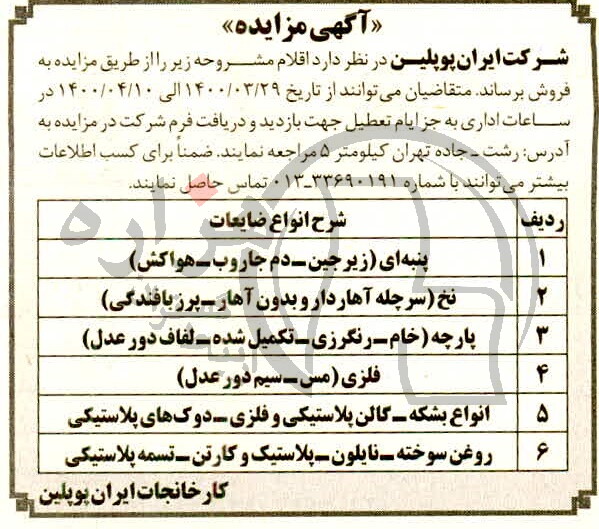 «آگهی مزایده»
شرکت ایران پوپلین در نظر دارد اقلام مشروحه زیر را از طریق مزایده به
فروش برساند. متقاضیان می‌توانند از تاریخ ۱۴۰۰/۰۳/۲۹ الی ۱۴۰۰/۰۴/۱۰ در
ساعات اداری به جز ایام تعطیل جهت بازدید و دریافت فرم شرکت در مزایده به
آدرس: رشت ـ جاده تهران کیلومتر ۵ مراجعه نمایند. ضمناً برای کسب اطلاعات
بیشتر می‌توانند با شماره ۳۳۶۹۰۱۹۱-۰۱۳ تماس حاصل نمایند.
ردیف شرح انواع ضایعات
۱ پنبه‌ای (زیرجین ـ دم جاروب ـ هواکش)
۲ نخ (سرچله آهاردار و بدون آهار ـ پرز بافندگی)
۳ پارچه (خام ـ رنگرزی ـ تکمیل شده ـ لفاف دور عدل)
۴ فلزی (مس ـ سیم دور عدل)
۵ انواع بشکه ـ گالن پلاستیکی و فلزی ـ دوک‌های پلاستیکی
۶ روغن سوخته ـ نایلون ـ پلاستیک و کارتن ـ تسمه پلاستیکی
کارخانجات ایران پوپلین